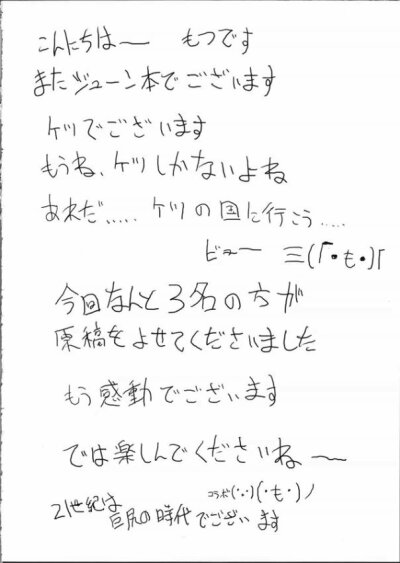 こんにちは〜 もつです
またジューン本でございます
ケツでございます
もうね、ケツしかないよね
あれだ..... ケツの国に行こう....
ビュー 三(「・も・)「
今回なんと3名の方が
原稿をよせてくださいました
もう感動でございます
では楽しんでくださいね〜
コラボ(・.・)(・も・)ノ
21世紀は
巨尻の時代でございます